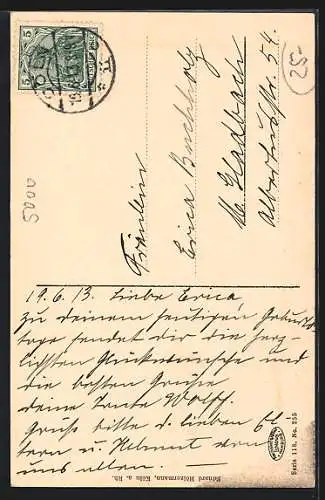 Fräulein
Erica Buchholz
M. Gladbach
Albertusstr. 54.
25-
5000
5
5
19.6.13. Liebe Erica,
zu deinem heutigen Geburts-
tage sendet dir die herz-
lichsten Glückwünsche und
die besten Grüße
deine Tante Wolff.
Grüße bitte d. lieben El-
tern u. Helmut von
uns allen.
Eduard Hölzermann, Köln a. Rh.
Serie 118, No. 255